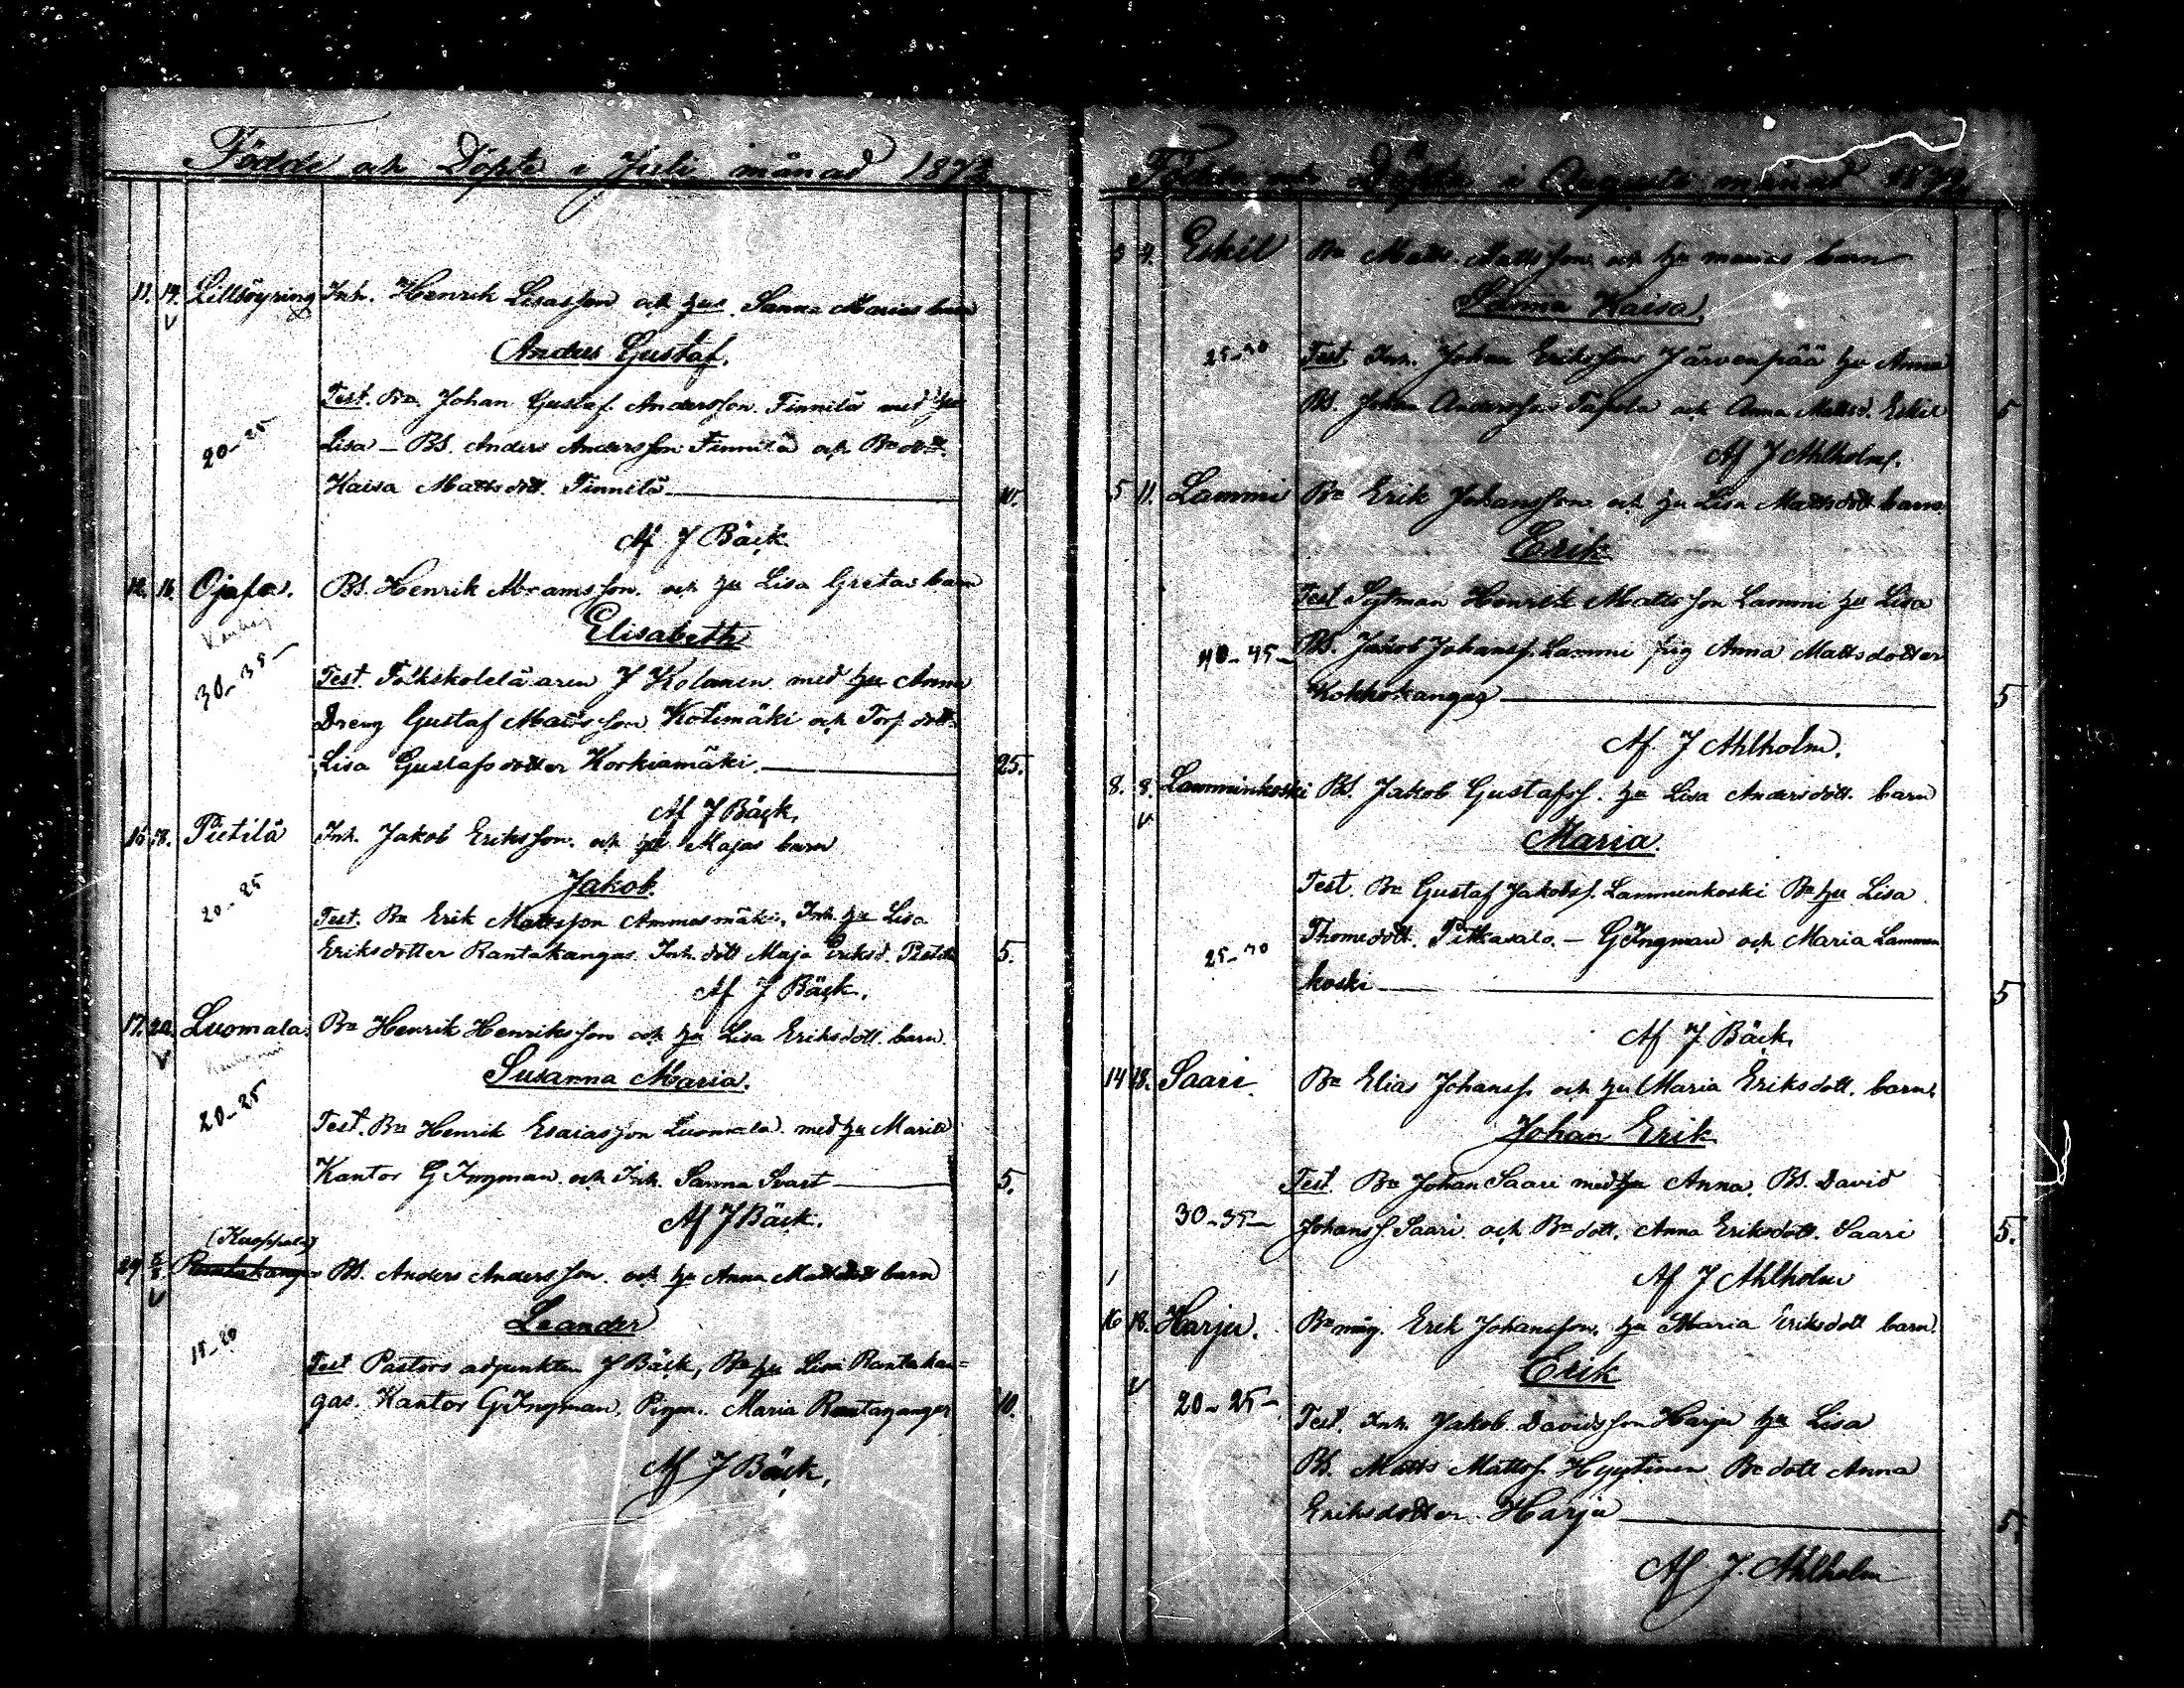 Födde och Döpte i Juli månad 1873
11. 14. Lillsöyring Inh. Henrik Lisasson och hu Sanna Marias barn
Anders Gustaf.
Test. Bn Johan Gustaf Andersson Finnilä med hu
20-25
Lisa – BS. Anders Andersson Finnilä och Bn dott.
Kaisa Mattsdott. Finnilä 10.
Af J Bäck
12. 16. Ojala. BS. Henrik Abramsson och hu Lisa Gretas barn
Elisabeth
30-35
Test. Folkskoleläraren J Kolanen med hu Anna
Dreng Gustaf Mattsson Kotimäki och Torp dott.
Lisa Gustafsdotter Korkiamäki. 25.
Af J Bäck.
15. 18. Pietilä Inh. Jakob Eriksson och hu Majas barn
Jakob.
20-25
Test. Bn Erik Mattsson Ammasmäki, Inh. hu Lisa
Eriksdotter Rantakangas Inh. dott Maja Eriksd. Pietilä 5.
Af J Bäck.
17. 20. Luomala. Bn Henrik Henriksson och hu Lisa Eriksdott. barn
Susanna Maria.
20-25
Test. Bn Henrik Esaiasson Luomala med hu Maria
Kantor G Ingman och Inh. Sanna Svart 5.
Af J Bäck.
(Kuoppala)
29 Rantakangas BS. Anders Andersson och hu Anna Mattsdott barn
Leander
15-20
Test Pastors adjunkten J Bäck, Bn hu Lisa Rantakan=
gas. Kantor G Ingman, Pigan Maria Rantagangas 10.
Af J Bäck.
Födde och Döpte i Augusti månad 1873.
3 4. Eskil Bn Matts Mattsson och hu Marias barn
Kaisa.
25-30 Test. Inh. Johan Eriksson Järvenpää hu Anna
BS. Johan Andersson Tapola och Anna Mattsd. Eskil 5
Af J Ahlholm.
5 11. Lammi Bn Erik Johansson och hu Lisa Mattsdott barn
Erik
Test Sytman Henrik Mattsson Lammi hu Lisa
40-45 BS. Jakob Johanss. Lammi pig Anna Mattsdotter
Kokkokangas 5
Af J Ahlholm.
8. 8. Lamminkoski BS. Jakob Gustafss. hu Lisa Andersdott. barn
Maria.
Test. Bn Gustaf Jakobss. Lamminkoski Bn hu Lisa
25-30 Thomedott. Pitkasalo. – G Ingman och Maria Lammin
koski 5
Af J Bäck.
14 18. Saari. Bn Elias Johanss. och hu Maria Eriksdott. barn
Johan Erik
Test. Bn Johan Saari med hu Anna, BS. David
30-35 Johanss. Saari och Bn dott. Anna Eriksdott. Saari 5.
Af J Ahlholm
16 18. Harju. Bn måg. Erik Johansson, hu Maria Eriksdott barn.
Erik
20-25 Test. Inh. Jakob Davidsson Harju hu Lisa
BS. Matts Mattss. Hyytinen Bn dott Anna
Eriksdotter Harju 5.
Af J. Ahlholm